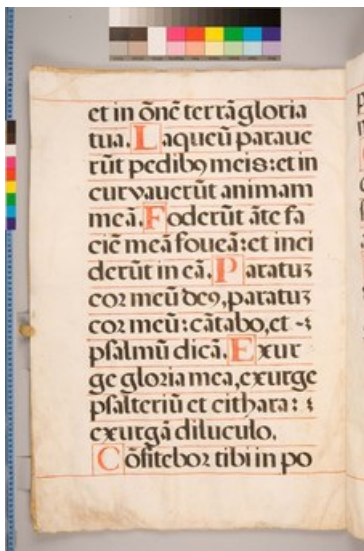 et in õnē terrã gloria
tua. Laqueũ paraue
rũt pedibꝯ meis: et in
curvauerũt animam
meã. Foderũt ãte fa
ciē meã foueã: et inci
derũt in eã. Paratuꝫ
coꝛ meũ deꝯ, paratuꝫ
coꝛ meũ: cãtabo, et ⁊
psalmũ dicã. Exur
ge gloꝛia mea, exurge
psalteriũ et cithara: ⁊
exurgã diluculo.
Cõfiteboꝛ tibi in po